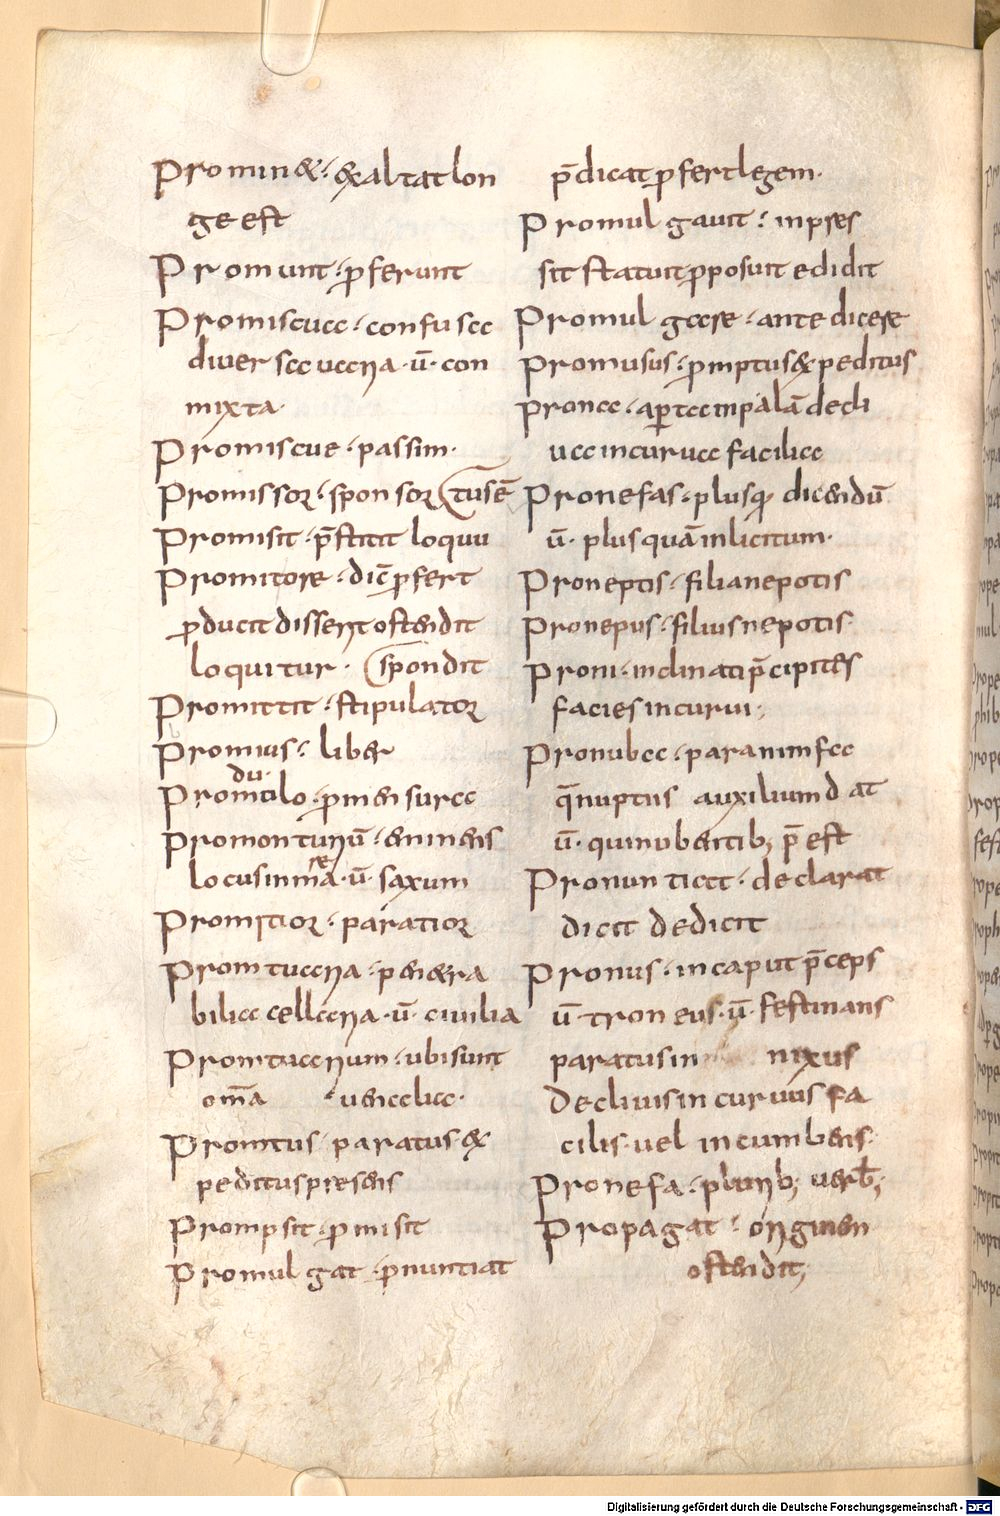 Promin& · &altat lon
ge est
Promunt · ꝓferunt
Promiscua · confusa
diuersa uaria · ū · con
mixta ·
Promiscue · passim ·
Promissor · sponsor (tusē
Promisit · p̄stitit loquu
Promitore · dic̄ ꝓfert
ꝓducit disserit ostendit
loquitur · (spondit
Promittit · stipulator
Promius · liber
du ·
Promtilo · ꝓmensura
Promonturiū · eminens
re
locus in ma · ū · saxum
Promtior · paratior
Promtuaria · penera
bilia cellaria · ū · ciuilia
Promtuarium · ubi sunt
om̄a · uenalia ·
Promtus · paratus · &
peditus presens
Prompsit · ꝓmisit
Promulgat · ꝓnuntiat
p̄dicat ꝓfert legem ·
Promulgauit · inpres
sit statuit ꝓposuit edidit
Promulgare · ante dicere
Promusus · ꝓmptus &peditus
Prona · aꝑta inpalā decli
ua incurua facilia
Pronefas · plusq; dicendū
ū · plus quā inlicitum ·
Proneptis · filia nepotis
Pronepus · filius nepotis ·
Proni · inclinati p̄cipites
facies incurui ;
Pronuba · paranimfa
q̄ nuptiis auxilium dat
ū · qui nubentib; p̄est
Pronuntiat · declarat
dicit dedicit
Pronus · in caput p̄ceps
ū · troneus · ū · festinans
paratus in nixus
decliuis incuruus fa
cilis · uel incumbens ·
Pronefa · plurib; uerb̄;
Propagat · originem
ostendit;
Digitalisierung gefördert durch die Deutsche Forschungsgemeinschaft - DFG